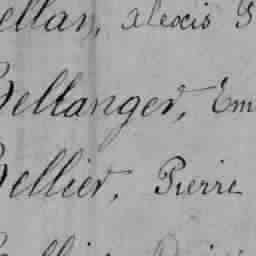 ellan, Alexis
Bellanger, Em
Bellier, Pierre